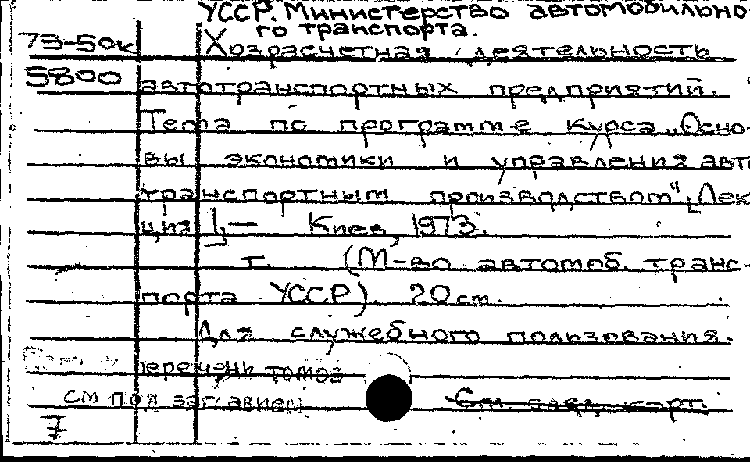 УССР. Министерство автомобильно-
го транспорта.
73-50к Хозрасчетная деятельность
5800 автотранспортных предприятий.
Тема по программе курса „Осно-
вы экономики и управления авто
транспортным производством" [Лек
ция]. — Киев, 1973.
т. (М-во автомоб. транс-
порта УССР) 20 см.
Для служебного пользования.
перечень томов
см под заглавием См. след. карт.
7